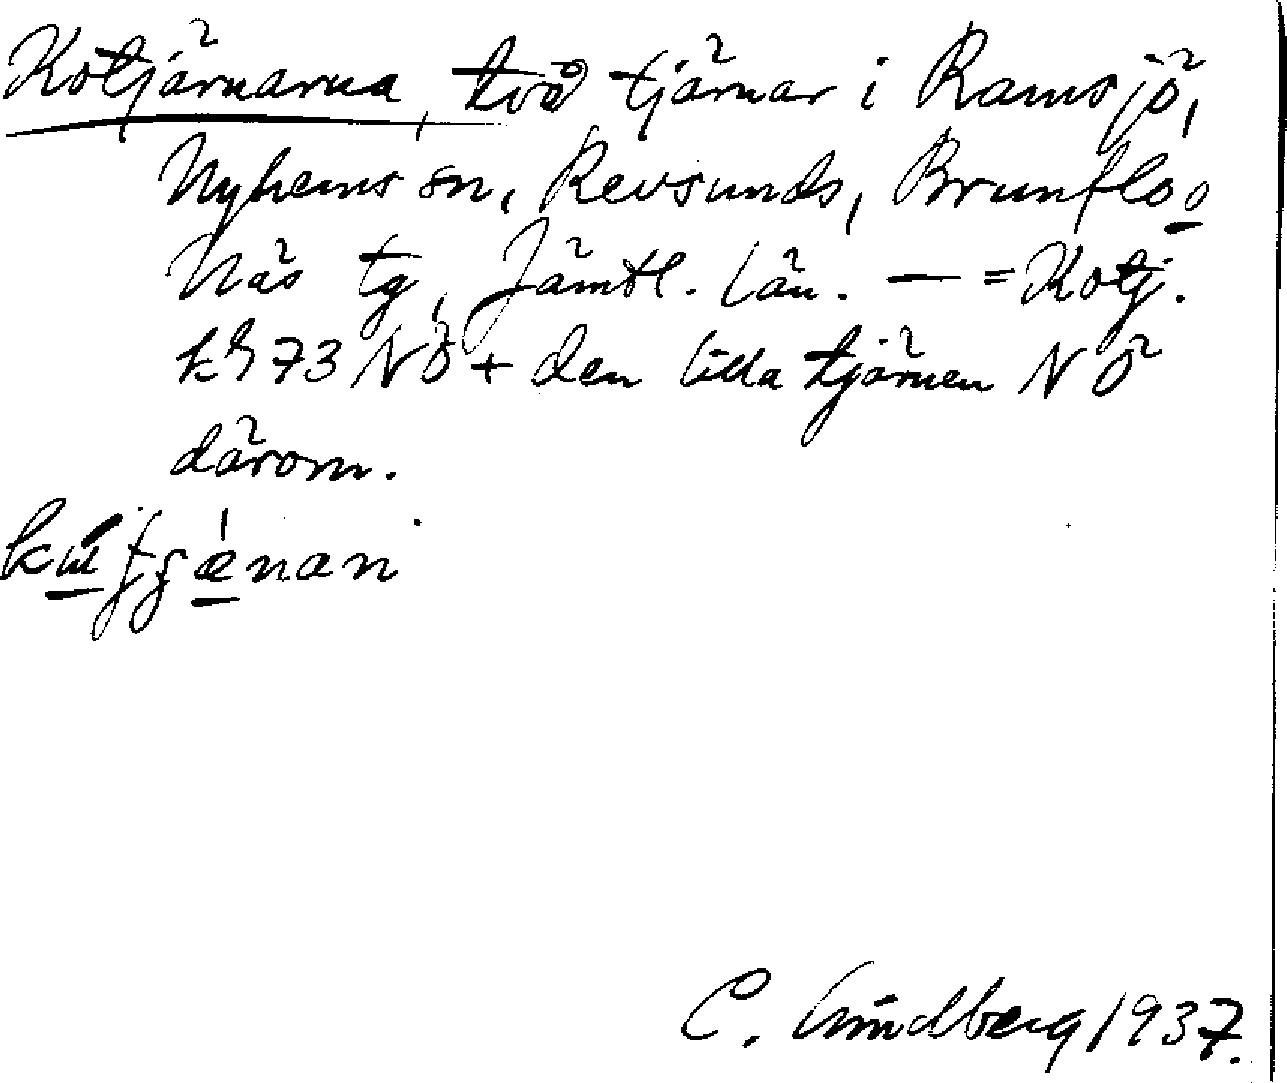 Kotjärnarna, två tjärnar i Ramsjö,
Nyhems sn, Revsunds, Brunflo o
Näs tg, Jämtl. län. — = Kotj.
kb 73 NÖ + den lilla tjärnen NÖ
därom.
C. Lindberg 1937.